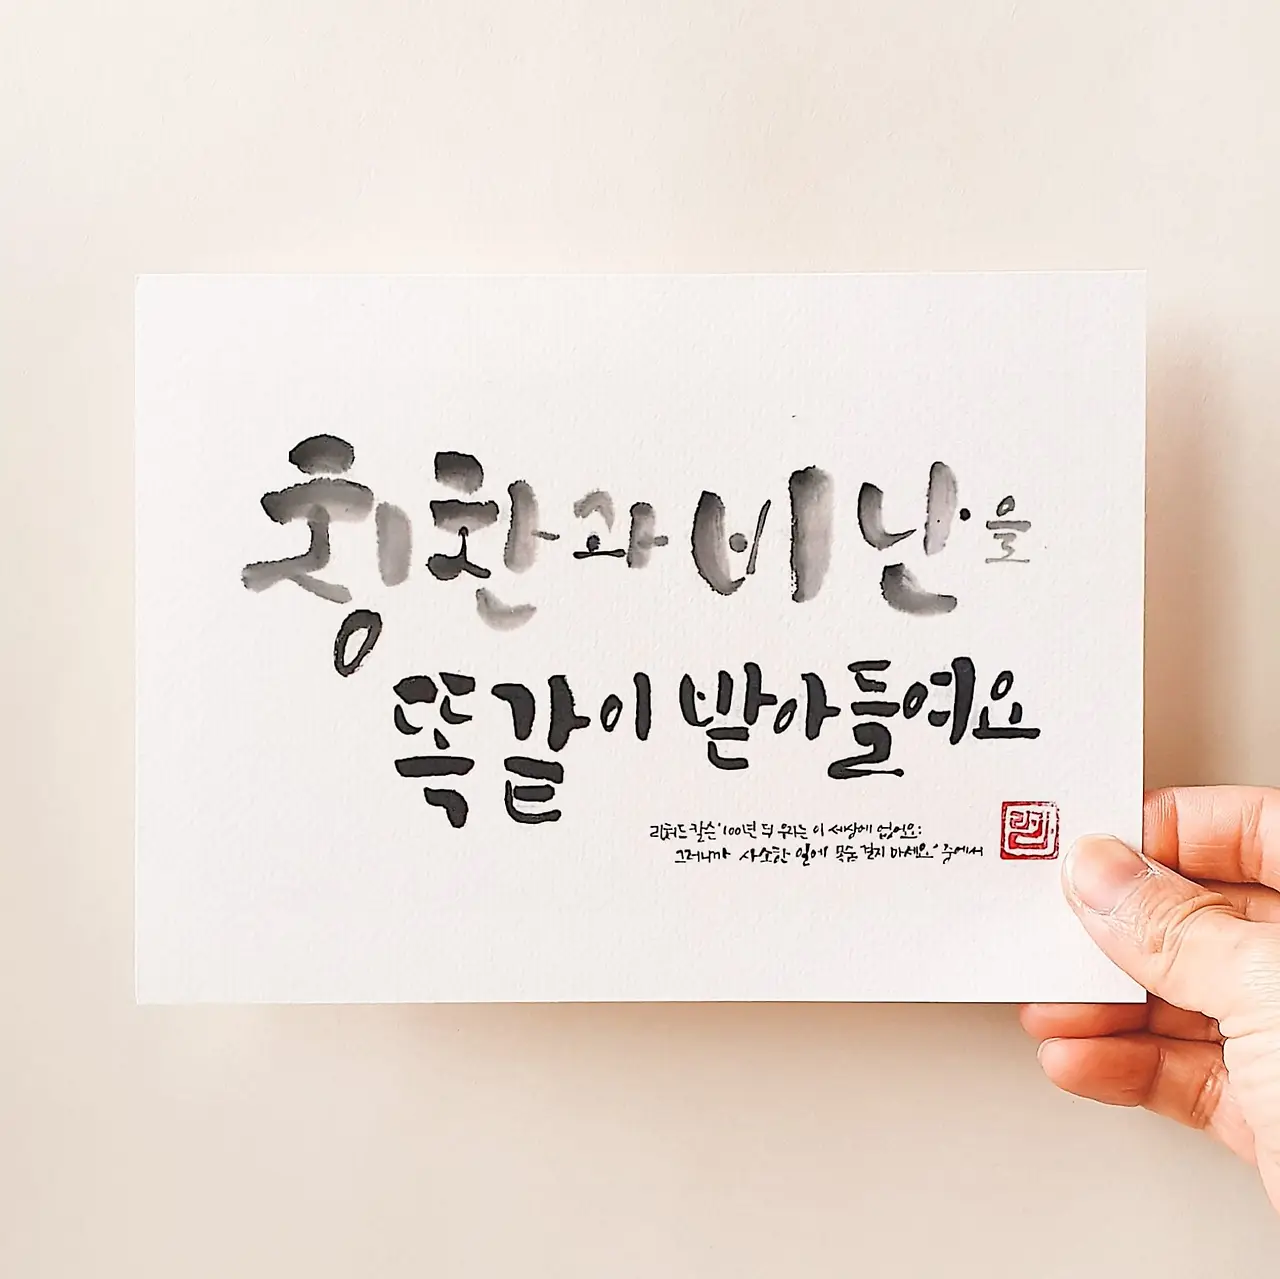 칭찬과 비난을
똑같이 받아들여요
리처드 칼슨 '100년 뒤 우리는 이 세상에 없어요:
그러니까 사소한 일에 목숨 걸지 마세요.' 중에서